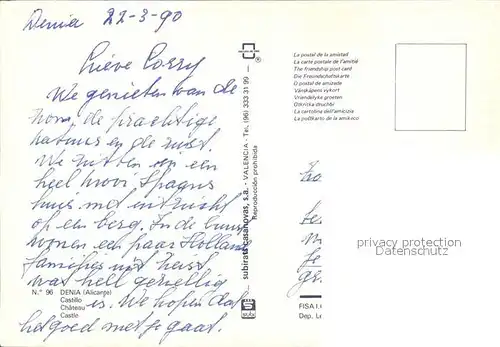 Denia 22-3-90
Lieve Corry
We genieten van de
zon, de prachtige
natuur en de rust.
We zitten in een
heel mooi Spaans
huis met uitzicht
op een berg. In de buurt
wonen een paar Hollandse
families uit Zeist
wat heel gezellig
is. We hopen dat
het goed met je gaat.
N.° 96 DENIA (Alicante)
Castillo
Château
Castle
subirats casanovas, s.a. - VALENCIA - Tel. (96) 333 31 99
Reproducción prohibida
®
La postal de la amistad
La carte postale de l'amitié
The friendship post card
Die Freundschaftskarte
O postal de amizade
Vänskapens vykort
Vriendelyke groeten
Otkritka druzhbi
La cartolina dell'amicizia
La poŝtkarto de la amikeco
privacy protection
Datenschutz
FISA I.
Dep. Le